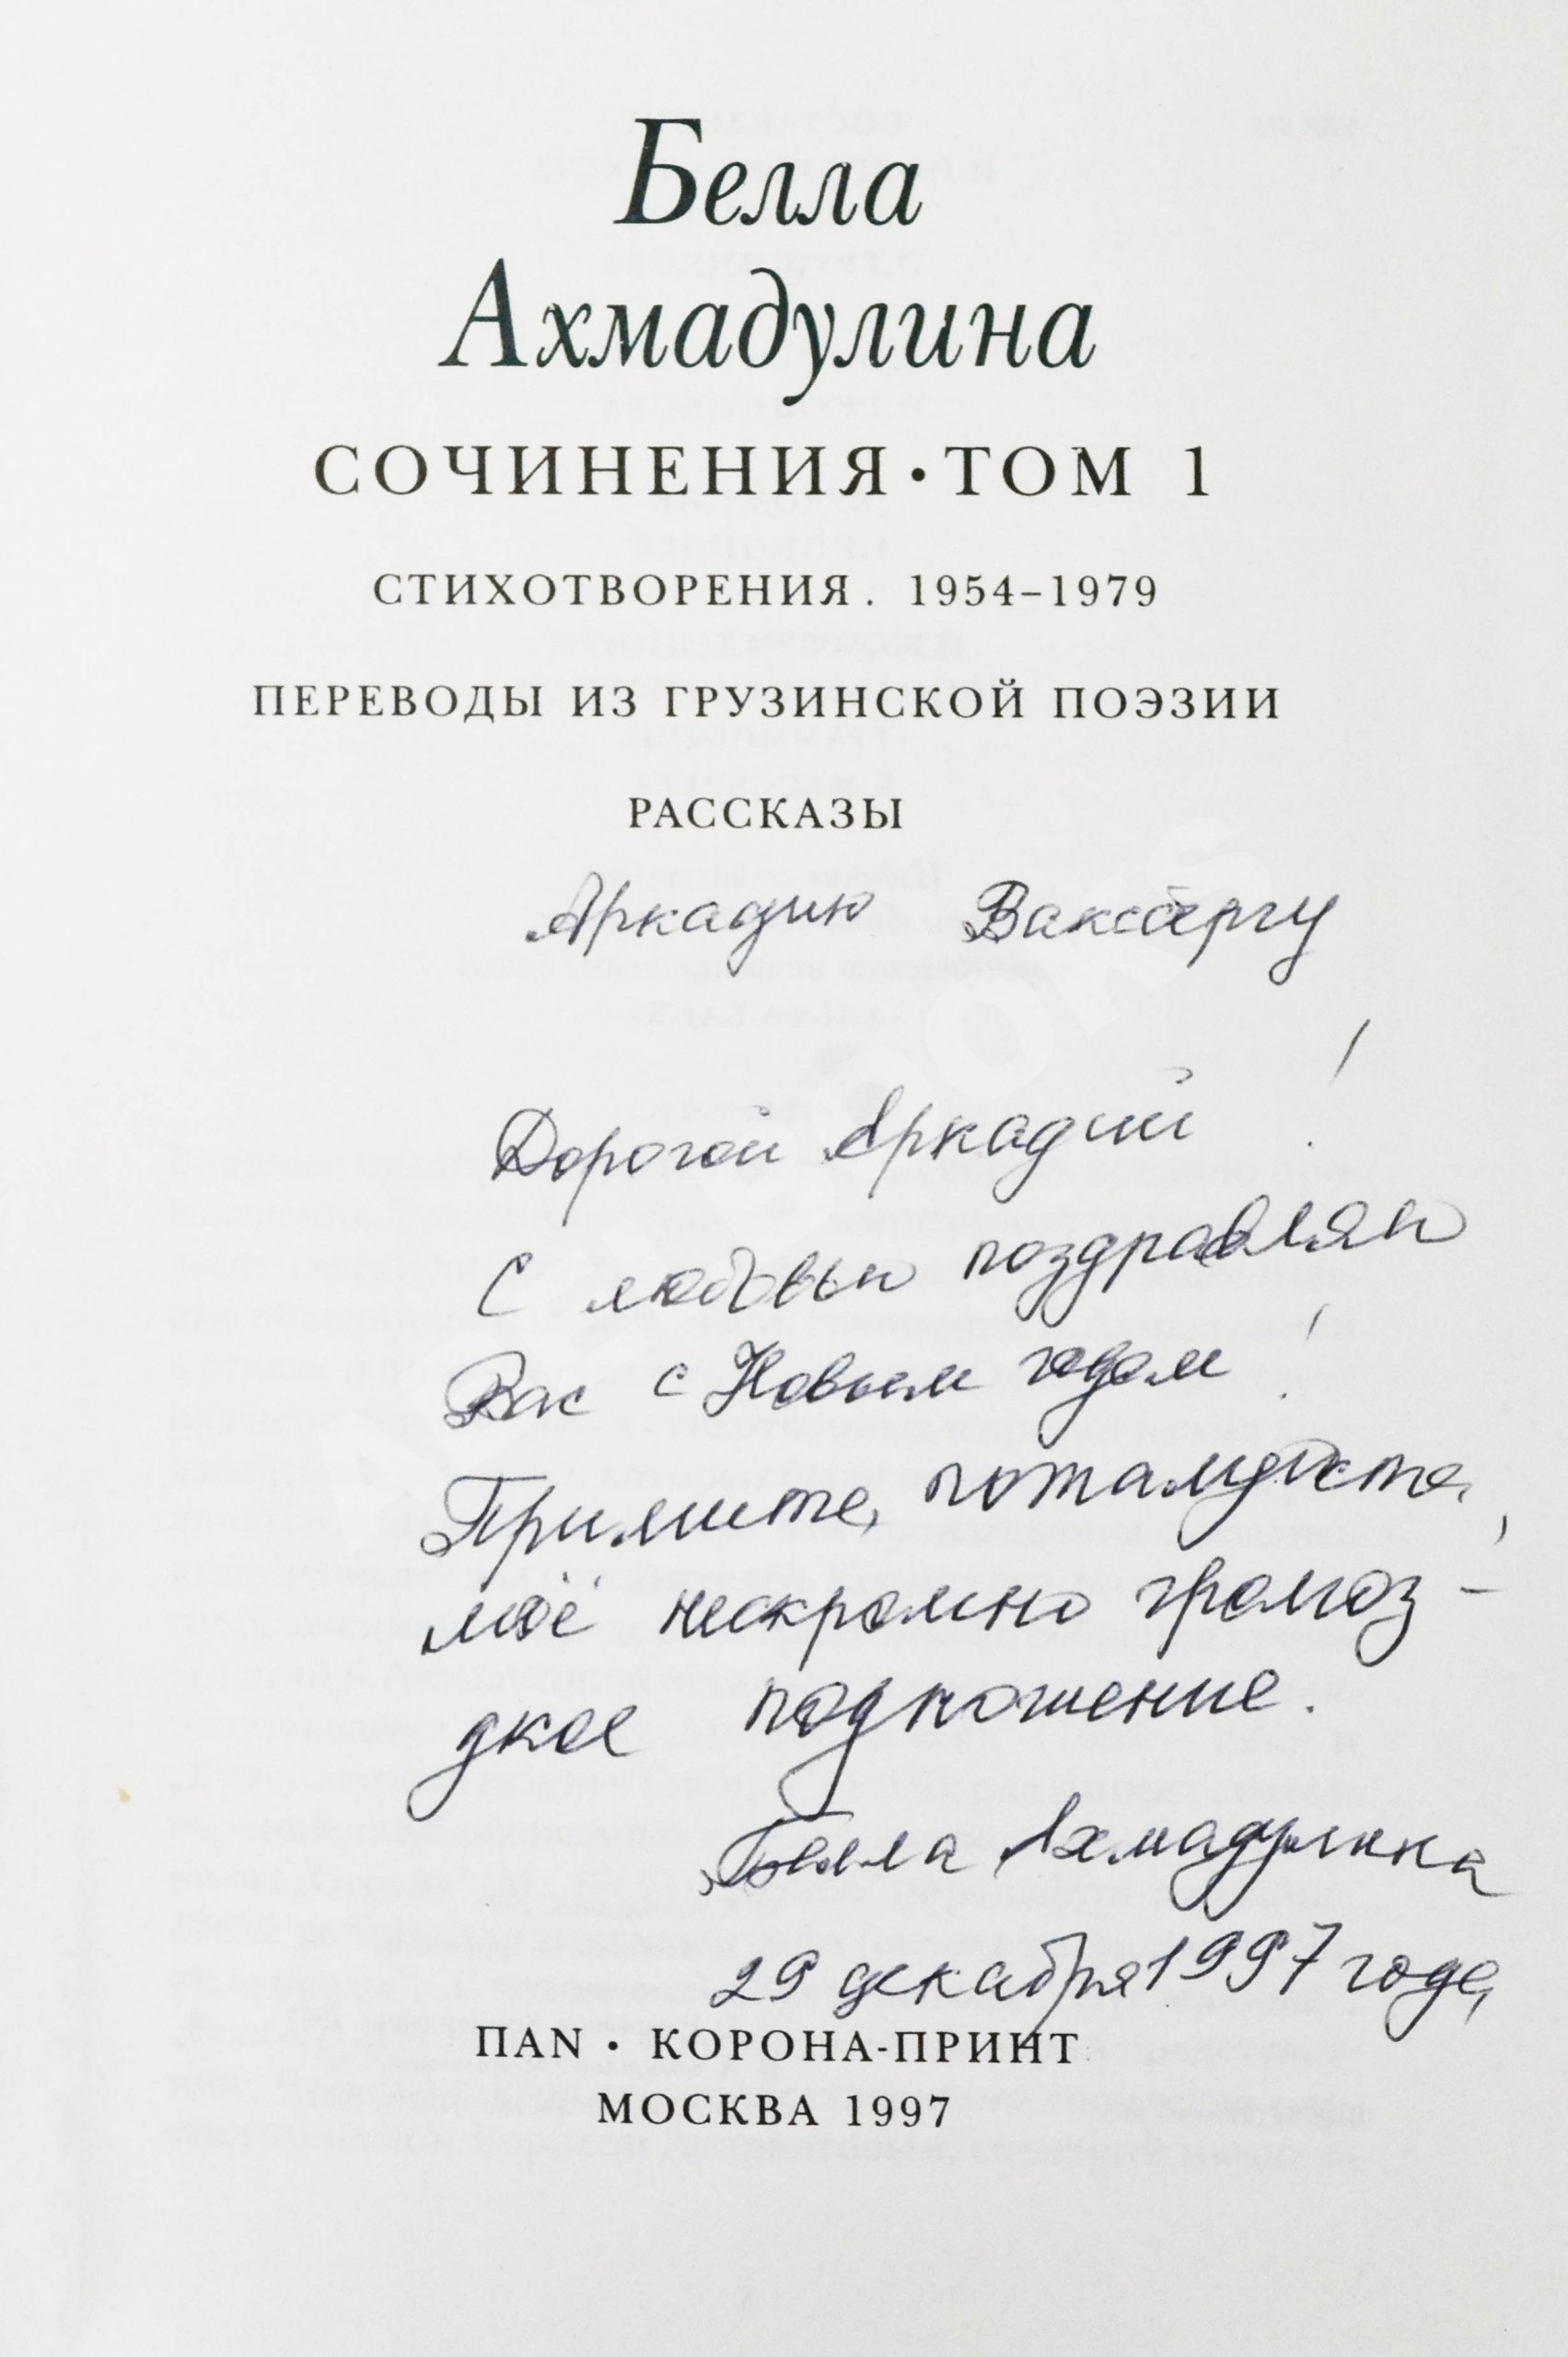 Белла
Ахмадулина
СОЧИНЕНИЯ · ТОМ 1
СТИХОТВОРЕНИЯ. 1954–1979
ПЕРЕВОДЫ ИЗ ГРУЗИНСКОЙ ПОЭЗИИ
РАССКАЗЫ
Аркадию Ваксбергу
Дорогой Аркадий!
С любовью поздравляю
Вас с Новым годом!
Примите, пожалуйста,
моё нескромно громоз-
дкое подношение.
Белла Ахмадулина
29 декабря 1997 года
ПАN · КОРОНА-ПРИНТ
МОСКВА 1997